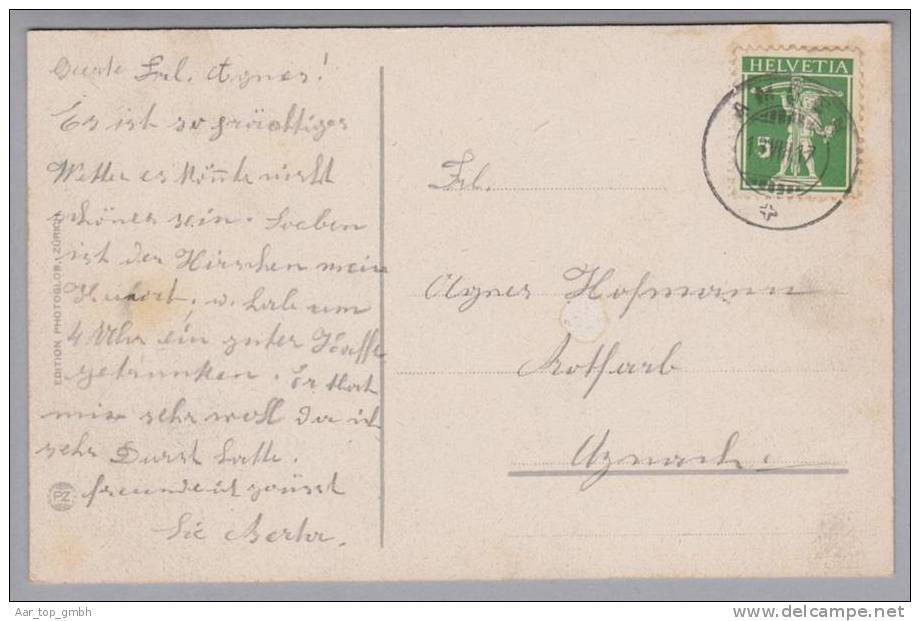 Frl. Agnes!
Es ist so prächtiges
Wetter es könnte nicht
schöner sein. Soeben
ist der Hirschen mein
um
4 Uhr ein guter Kaffe
getrunken. Er that
mir sehr wohl da ich
sehr Durst hatte.
freundlich grüsst
Sie Berta.
EDITION PHOTOGLOB, ZÜRICH
PZ
HELVETIA
5
AMDEN
Frl.
Agnes Hofmann
Rotfarb
Uznach.
Aar_top_gmbh
www.delcampe.net